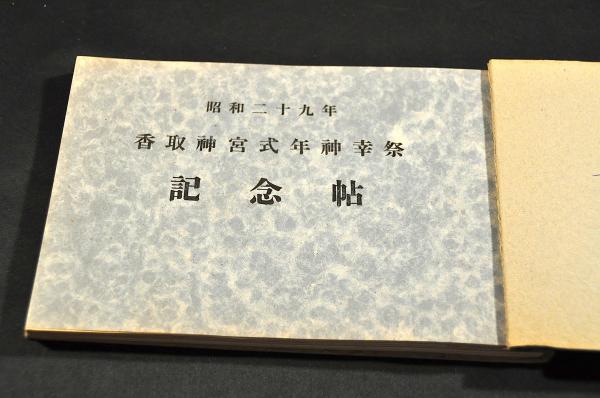 昭和二十九年
香取神宮式年神幸祭
記念帖